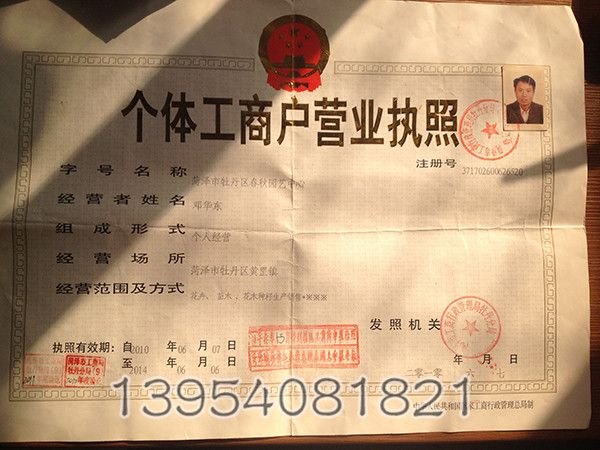 个体工商户营业执照
注册号
371702600626520
字号名称 菏泽市牡丹区春秋园艺中心
经营者姓名 邓华东
组成形式 个人经营
经营场所 菏泽市牡丹区黄堽镇
经营范围及方式 花卉、苗木、花木种籽生产销售*※※※
发照机关
执照有效期：自 2010 年 06 月 07 日
至 2014 年 06 月 06 日
年 月 日
二〇一〇 六 七
13954081821
中华人民共和国国家工商行政管理总局制